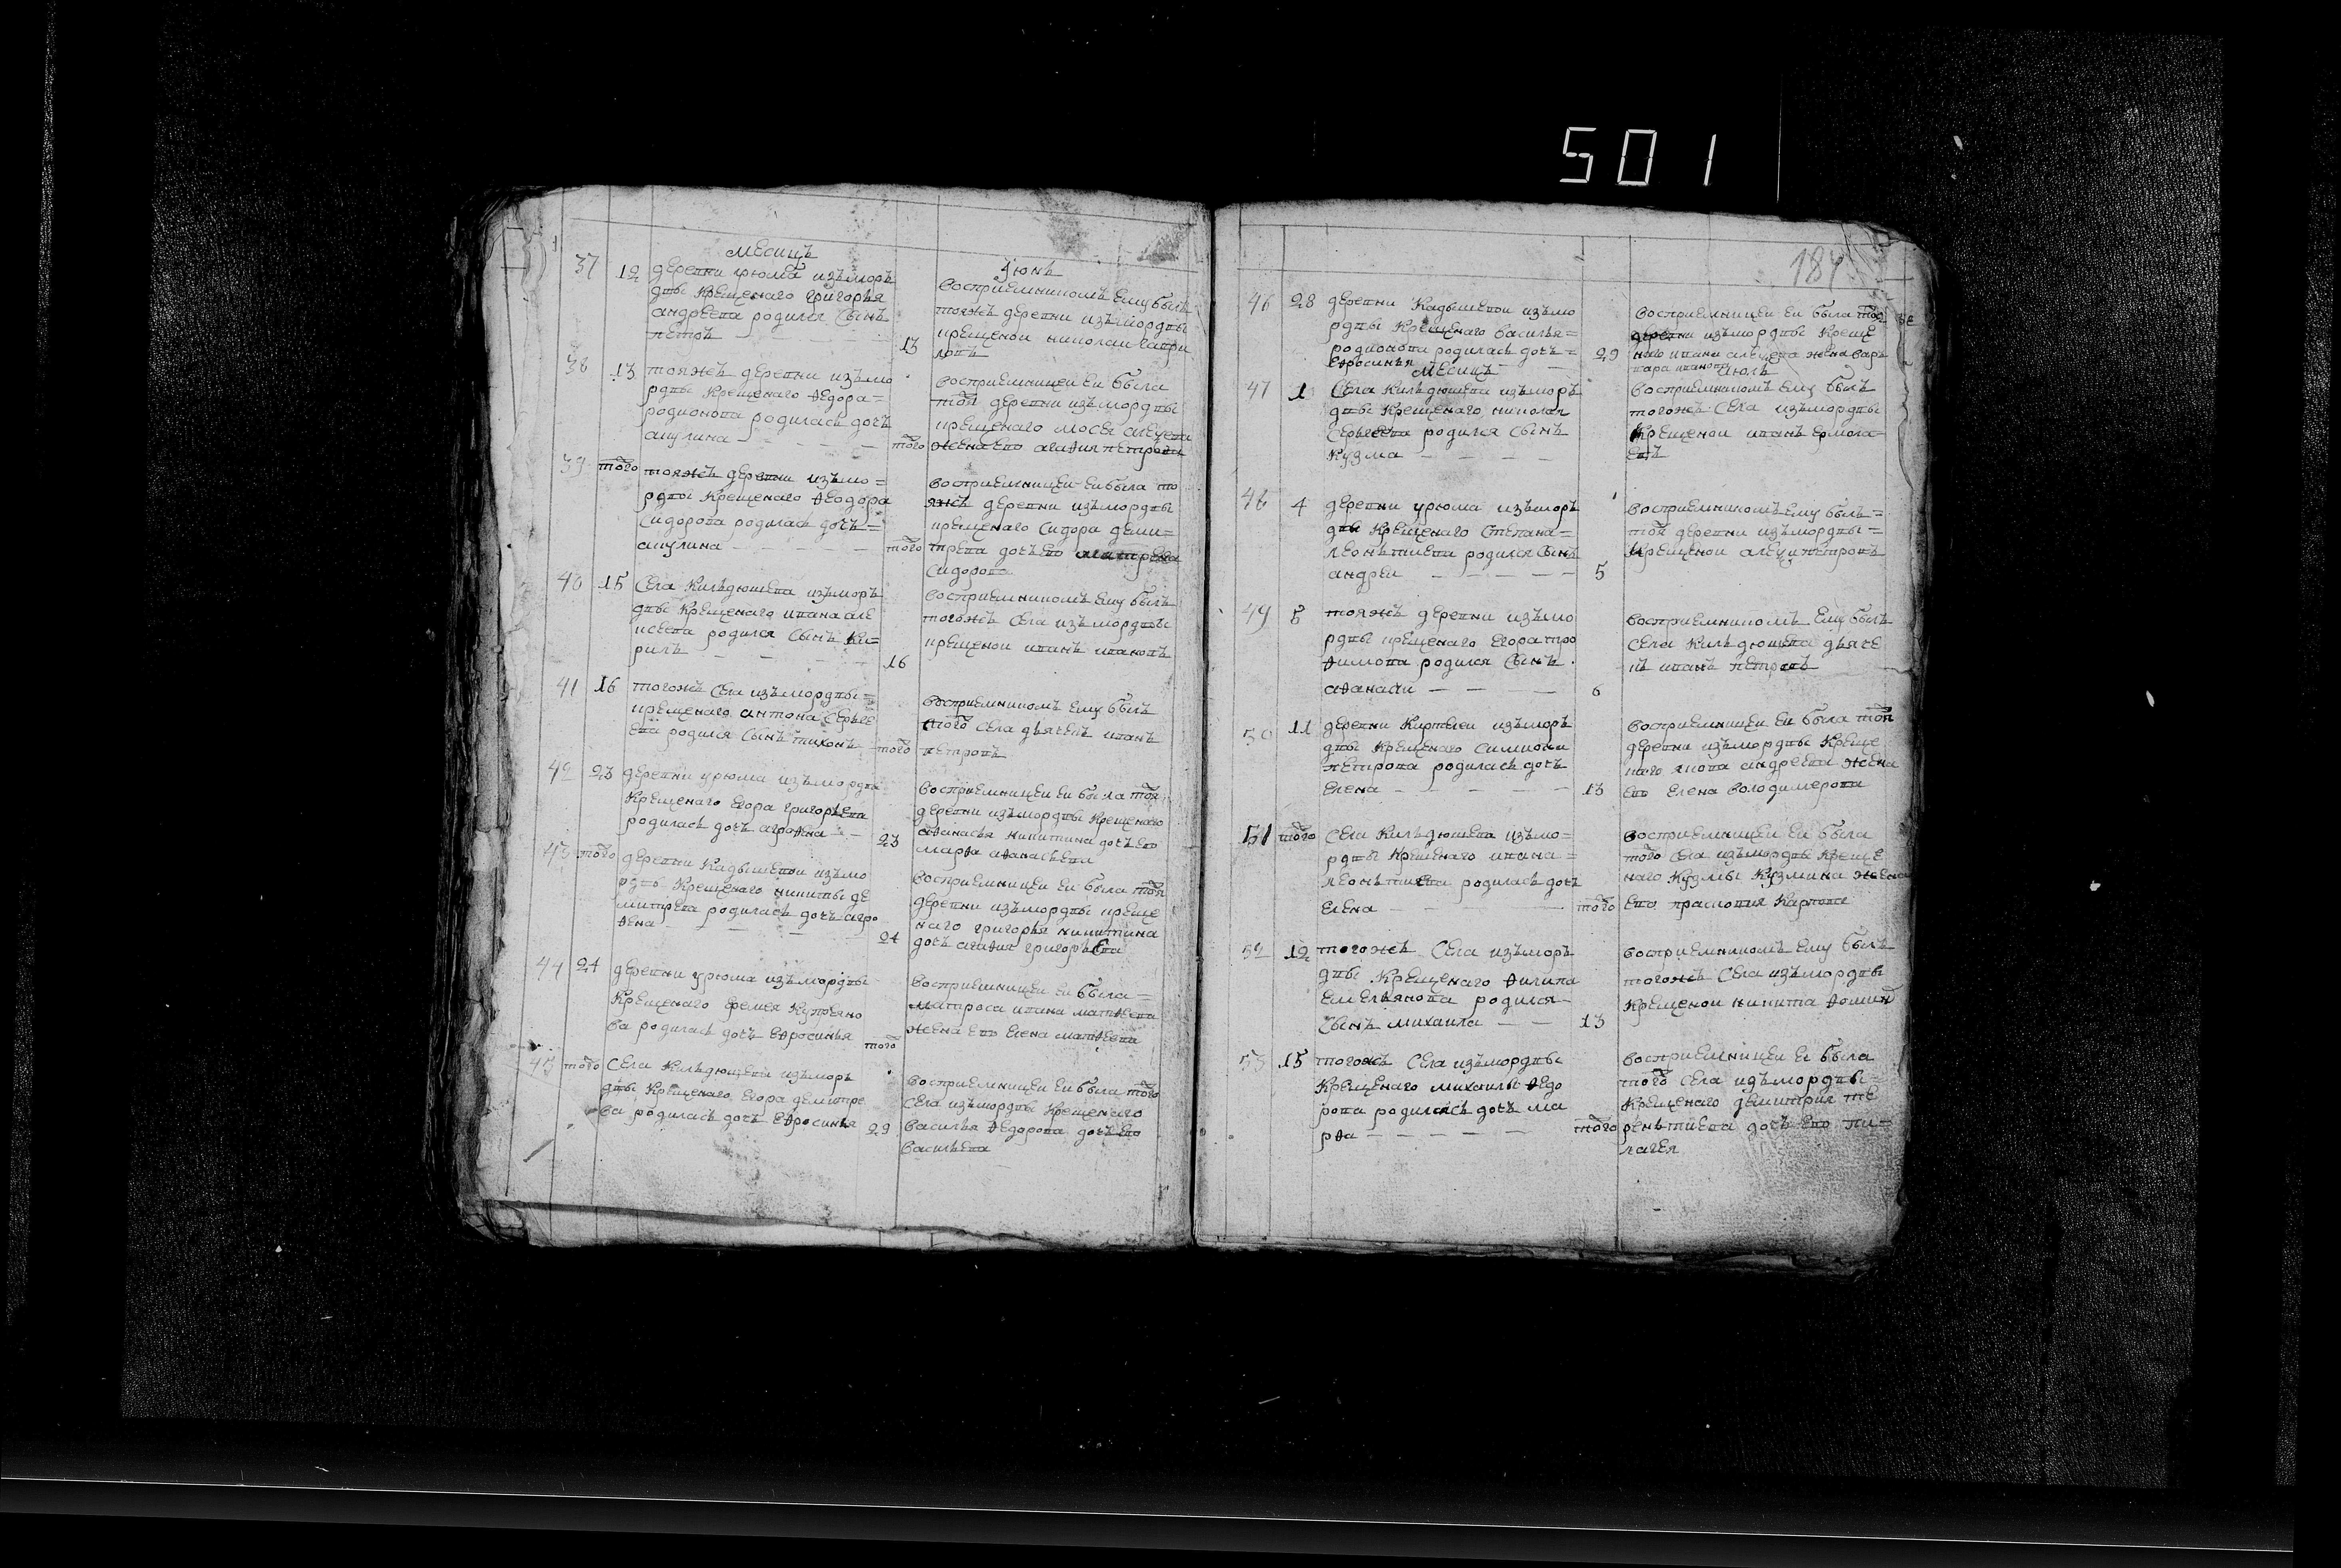 501
месицъ
Июнь
37 12 деревни урюма изъ мор
двы крещенаго григорья
андреева родился сынъ
петръ
13
восприемникомъ ему былъ
тояжъ деревни изъ мордвы
крещеной николаи гаври
ловъ
38 13 тояжъ деревни изъ мо
рдвы крещенаго ѳедора =
родионова родилась дочь
акулина
того
восприемницеи еи была
той деревни изъ мордвы
крещенаго мосея
жена ево агаѳия петрова
39 того тояжъ деревни изъ мо =
рдвы крещенаго ѳеодора
сидорова родилась дочь =
акулина
того
восприемницеи еи была то
яжъ деревни изъ мордвы
крещенаго сидора деми =
трева дочь ево
сидорова
40 15 села кильдюшева изъ мор
двы крещенаго ивана але
исеева родился сынъ ки =
рилъ
16
восприемникомъ ему былъ
тогожъ села изъ мордвы
крещеной иванъ ивановъ
41 16 тогожъ села изъ мордвы =
крещенаго антона сергѣе
ева родился сынъ тихонъ
того
восприемникомъ ему былъ
того села дьячекъ иванъ
петровъ
42 23 деревни урюма изъ мордвы
крещенаго егора григорьева
родилась дочь агроѳена
23
восприемницеи еи была той
деревни изъ мордвы крещенаго
аѳанасья никитина дочь ево
марѳа аѳанасьева
43 того деревни кадышевои изъ мо
рдвы крещенаго никиты де
митрева родилась дочь агро
ѳена
24
восприемницеи еи была той
деревни изъ мордвы креще
наго григорья никитина
дочь агаѳия григорьева
44 24 деревни урюма изъ мордвы
крещенаго еремея купреяно
ва родилась дочь еѳросинья
того
восприемницеи еи была =
матроса ивана матвеева
жена ево елена матвеева
45 того села кильдюшева изъ мор
двы крещенаго егора демитре
ва родилась дочь еѳросинья
29
восприемницеи еи была того
села изъ мордвы крещенаго
василья ѳедорова дочь ево
васильева
184
46 28 деревни кадышевои изъ мо
рдвы крещенаго василья =
родионова родилась дочь =
еѳросинья
29
восприемницеи еи была той
деревни изъ мордвы креще
наго ивана жена вар
вара иванова
месицъ
июль
47 1 села кильдюшева изъ мор
двы крещенаго николая
сергѣева родился сынъ
кузма
восприемникомъ ему былъ
тогожъ села изъ мордвы
крещеной иванъ ермола
евъ
48 4 деревни урюма изъ мор
двы крещенаго степана =
леонътиева родился сынъ
андреи
5
восприемникомъ ему былъ =
той деревни изъ мордвы =
крещеной петровъ
49 5 тояжъ деревни изъ мо
рдвы крещенаго егора тро
ѳимова родился сынъ
аѳанаси
6
восприемникомъ ему былъ
села кильдюшева дьяче
къ иванъ петровъ
50 11 деревни киртелеи изъ мор
двы крещенаго симиона
петрова родилась дочь
елена
13
восприемницеи еи была той
деревни изъ мордвы креще
наго якова андреева жена
ево елена володимерова
51 того села кильдюшева изъ мо =
рдвы крещенаго ивана =
леонътиева родилась дочь
елена
того
восприемницеи еи была
того села изъ мордвы креще
наго кузмы кузмина жена
ево прасковия карпова
52 12 тогожъ села изъ мор
двы крещенаго ѳилипа
емельянова родился
сынъ михаила
13
восприемникомъ ему былъ
тогожъ села изъ мордвы
крещеной никита ѳомин
53 15 тогожъ села изъ мордвы
крещенаго михаилы ѳедо
рова родилась дочь ма
рѳа
того
восприемницеи еи была
того села изъ мордвы =
крещенаго димитрия те
рентиева дочь ево пи =
лагея